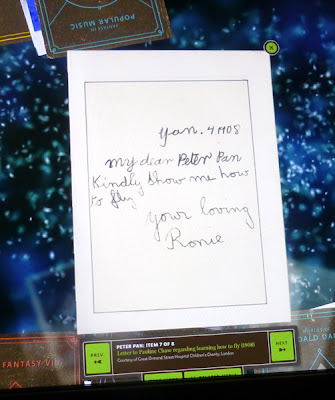 FANTASY IN
POPULAR MUSIC
Jan. 4 1908
My dear Peter Pan
Kindly show me how
to fly
your loving
Ronie
PETER PAN: ITEM 7 OF 8
Letter to Pauline Chase regarding learning how to fly (1908)
Courtesy of Great Ormond Street Hospital Children's Charity, London
PREV
NEXT